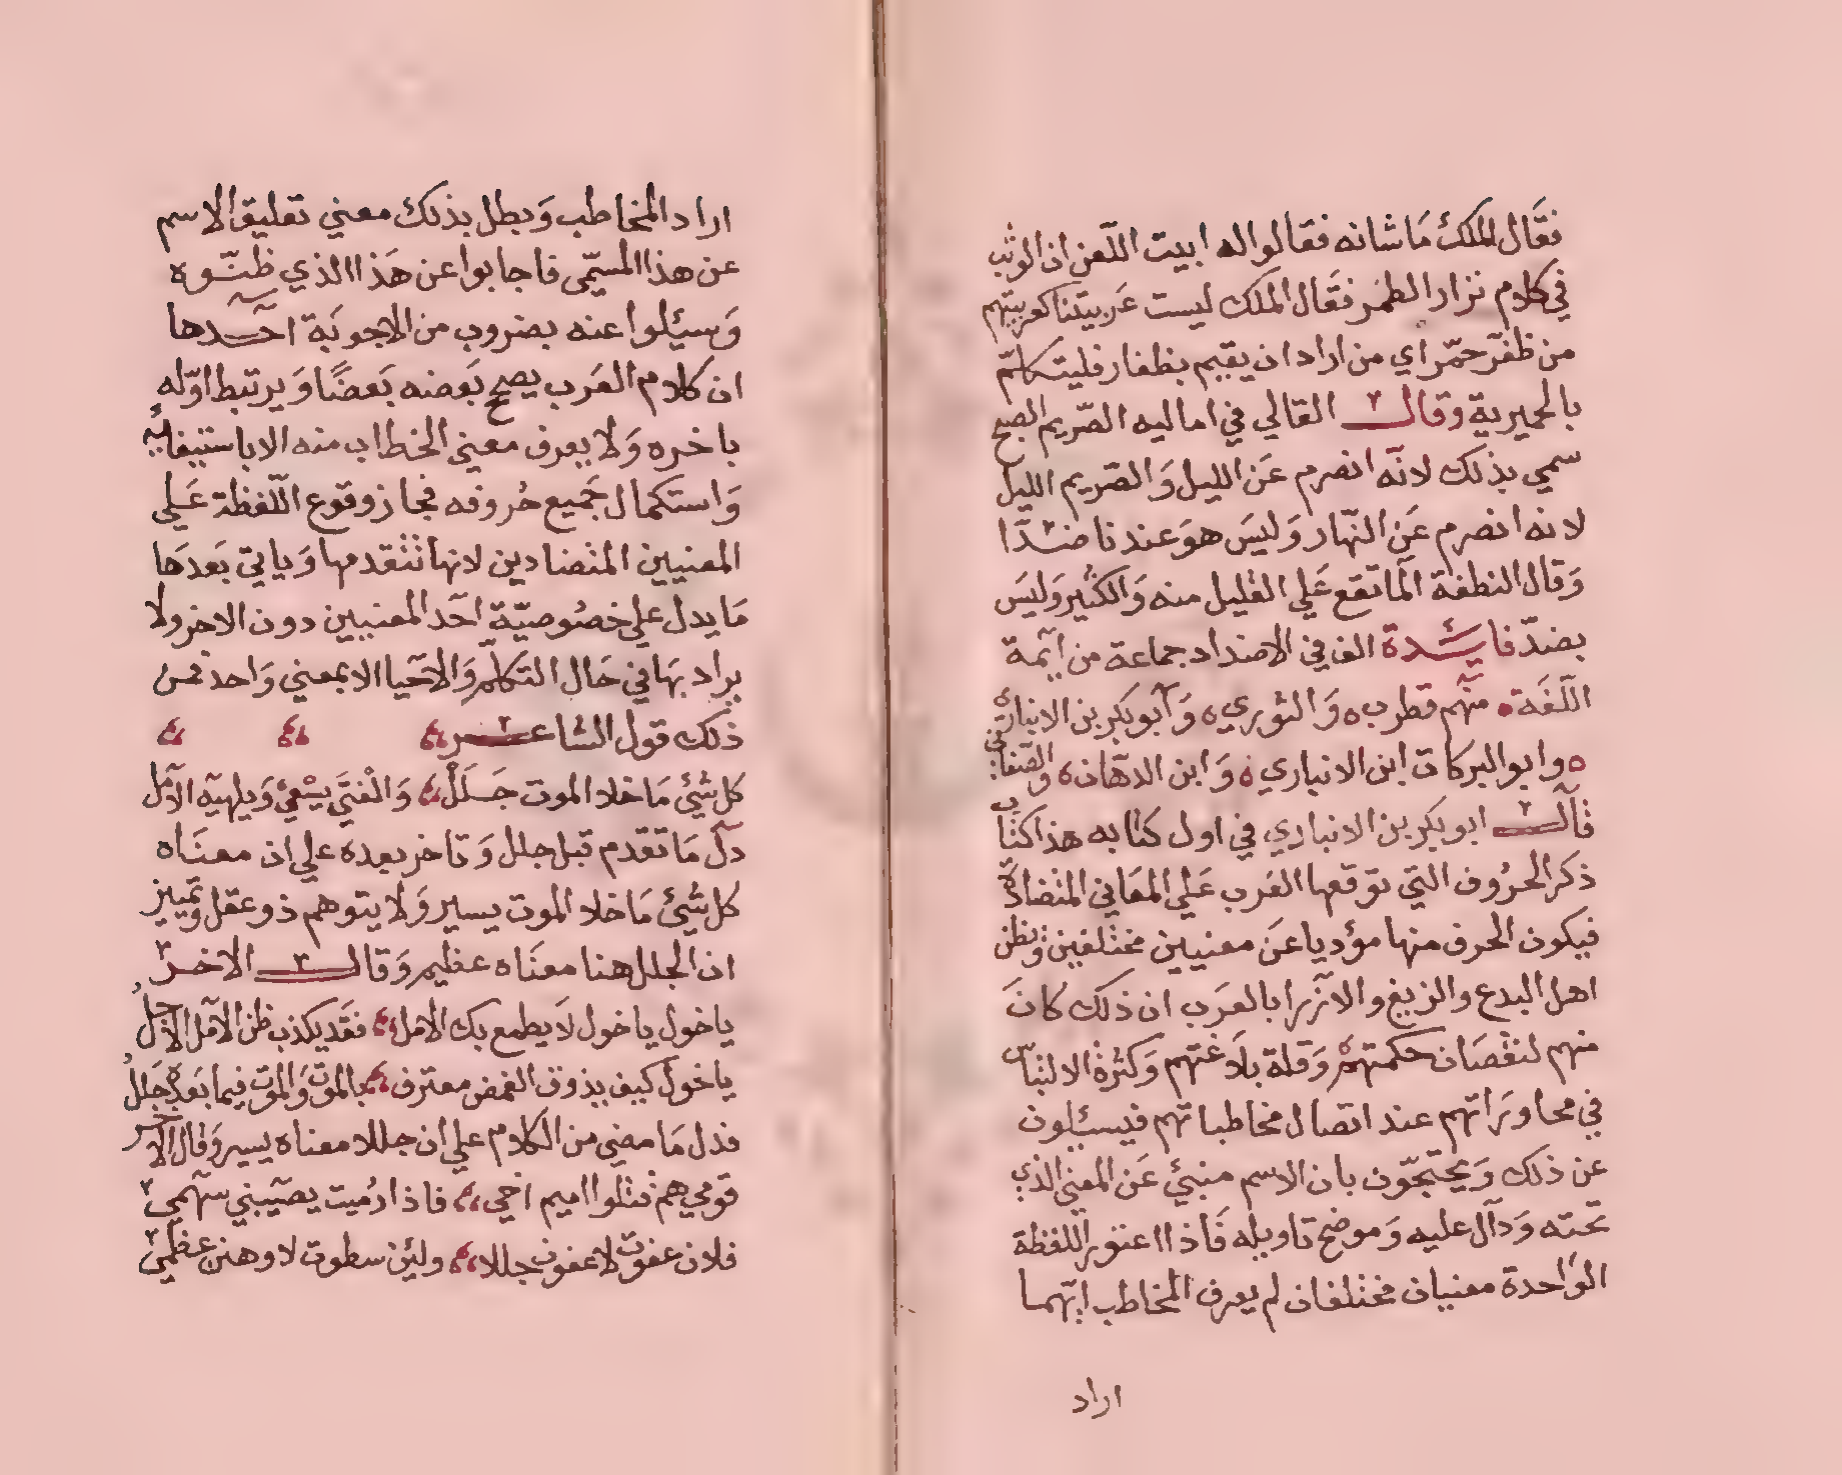 فقال الملك ما شانه فقالوا له ابيت اللعن ان الوثب
في كلام نزار الطمر فقال الملك ليست عربيتنا كعربيتهم
من ظفر حمّر اي من اراد ان يقيم بظفار فليتكلم
بالحميرية وقال القالي في اماليه الصّريم الصبح
سمي بذلك لانه انصرم عَن الليل وَالصّريم الليل
لانه انصرم عَن النّهار وَليسَ هوَ عندنا ضدّا
وَقال النطفة الما تقع عَلي القليل منه وَالكثير وَليسَ
بضدّ فايدة الف في الاضداد جماعة من ايمة
اللّغَة منهم قطرب وَالثوري وَابو بكر بن الانباري
وابو البركات ابن الانباري وَابن الدهّان والصّغاني
قال ابو بكر بن الانباري في اول كتابه هذا كتاب
ذكر الحرُوف التي توقعها العَرب عَلي المعَاني المتضادّة
فيكون الحرف منها مؤديا عَن معنيين مختلفين ويظن
اهل البدع والزيغ والازرا بالعرَب ان ذلك كانَ
منهم لنقصَان حكمتهم وَقلة بلاَغتهم وَكثرة الالتباس
في محاورَاتهم عند اتصال مخاطباتهم فيسيلون
عن ذلك وَيحتجّون بان الاسم منبئ عَن المعني الذي
تحته وَدآل عليه وَموضح تاويله فَاذا اعتور اللفظة
الوَاحدة معنيان مختلفان لم يعرف المخاطب ايّهما
اراد
اراد المخاطب وَبطل بذلك معني تعليق الاسم
عن هذا المسمّي فاجابوا عن هَذا الذي ظنّوه
وَسيلوا عنه بضروب من الاجوبَة احَدها
ان كلام العَرب يصحح بَعضه بَعضًا وَيرتبط اوّله
باخره وَلا يعرف معني الخطاب منه الا باستيفايه
وَاستكمال جَميع حُروفه فجاز وقوع اللّفظة عَلي
المعنيين المتضادين لانها تتقدمها وَياتي بَعدَها
مَا يدل علي خصُوصيّة احَد المعنيين دون الاخر ولا
يراد بهَا في حَال التكلّم وَالاحيا الا بمعني وَاحد فمن
ذلك قول الشاعر
كل شئ مَا خلا الموت جَلَلْ وَالْفتَي يسْعيْ وَيلهيه الاَمَل
دلّ مَا تقدم قبل جلل وَتاخر بعده علي ان معنَاه
كل شئ مَا خلا الموت يسير وَلا يتوهم ذو عقل وتمييز
ان الجلل هنا معنَاه عظيم وَقال الاخر
ياخول ياخول لاَ يطمع بك الامل فقَد يكذب ظن الآمل الاجلُ
ياخول كيف يذوق الغمض معترف بالموت وَالموت فيما بَعدهُ جَللُ
فدل مَا مضي من الكلام علي ان جللا معناه يسير وَقال الاخر
قومي هم قتلوا اميم اخي فاذا رمُيت يصيبني سهمي
فلان عفوت لاعفون جللا ولئن سطوت لاوهنن عظمي